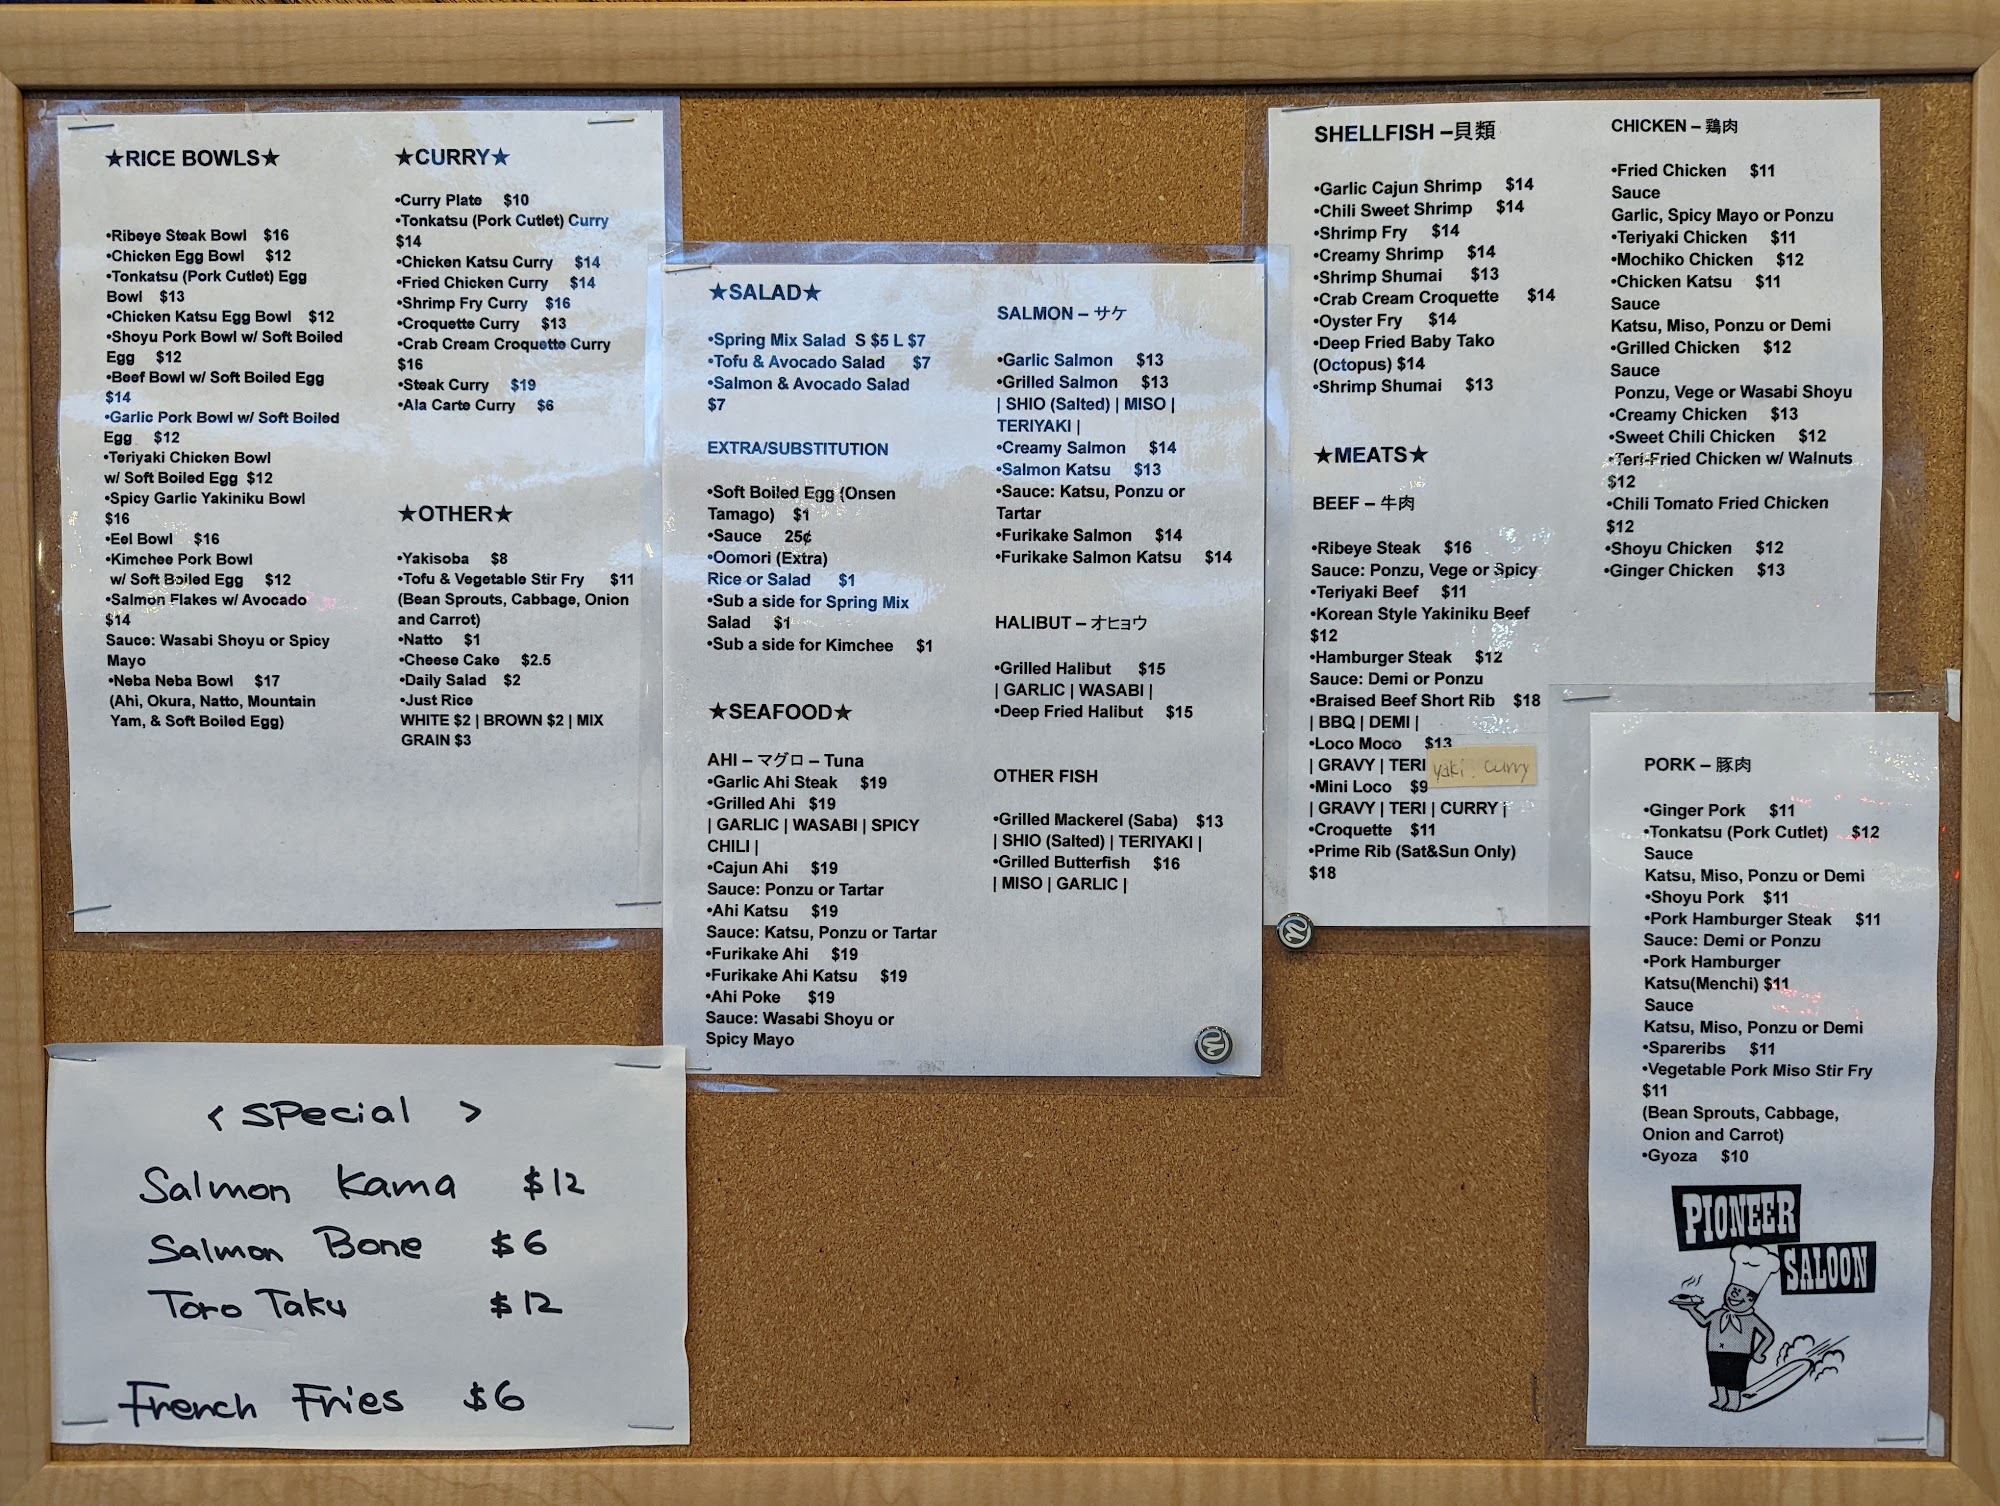 ★RICE BOWLS★
•Ribeye Steak Bowl $16
•Chicken Egg Bowl $12
•Tonkatsu (Pork Cutlet) Egg
Bowl $13
•Chicken Katsu Egg Bowl $12
•Shoyu Pork Bowl w/ Soft Boiled
Egg $12
•Beef Bowl w/ Soft Boiled Egg
$14
•Garlic Pork Bowl w/ Soft Boiled
Egg $12
•Teriyaki Chicken Bowl
w/ Soft Boiled Egg $12
•Spicy Garlic Yakiniku Bowl
$16
•Eel Bowl $16
•Kimchee Pork Bowl
w/ Soft Boiled Egg $12
•Salmon Flakes w/ Avocado
$14
Sauce: Wasabi Shoyu or Spicy
Mayo
•Neba Neba Bowl $17
(Ahi, Okura, Natto, Mountain
Yam, & Soft Boiled Egg)
★CURRY★
•Curry Plate $10
•Tonkatsu (Pork Cutlet) Curry
$14
•Chicken Katsu Curry $14
•Fried Chicken Curry $14
•Shrimp Fry Curry $16
•Croquette Curry $13
•Crab Cream Croquette Curry
$16
•Steak Curry $19
•Ala Carte Curry $6
★OTHER★
•Yakisoba $8
•Tofu & Vegetable Stir Fry $11
(Bean Sprouts, Cabbage, Onion
and Carrot)
•Natto $1
•Cheese Cake $2.5
•Daily Salad $2
•Just Rice
WHITE $2 | BROWN $2 | MIX
GRAIN $3
★SALAD★
•Spring Mix Salad S $5 L $7
•Tofu & Avocado Salad $7
•Salmon & Avocado Salad
$7
EXTRA/SUBSTITUTION
•Soft Boiled Egg (Onsen
Tamago) $1
•Sauce 25¢
•Oomori (Extra)
Rice or Salad $1
•Sub a side for Spring Mix
Salad $1
•Sub a side for Kimchee $1
★SEAFOOD★
AHI – マグロ – Tuna
•Garlic Ahi Steak $19
•Grilled Ahi $19
| GARLIC | WASABI | SPICY
CHILI |
•Cajun Ahi $19
Sauce: Ponzu or Tartar
•Ahi Katsu $19
Sauce: Katsu, Ponzu or Tartar
•Furikake Ahi $19
•Furikake Ahi Katsu $19
•Ahi Poke $19
Sauce: Wasabi Shoyu or
Spicy Mayo
SALMON – サケ
•Garlic Salmon $13
•Grilled Salmon $13
| SHIO (Salted) | MISO |
TERIYAKI |
•Creamy Salmon $14
•Salmon Katsu $13
•Sauce: Katsu, Ponzu or
Tartar
•Furikake Salmon $14
•Furikake Salmon Katsu $14
HALIBUT – オヒョウ
•Grilled Halibut $15
| GARLIC | WASABI |
•Deep Fried Halibut $15
OTHER FISH
•Grilled Mackerel (Saba) $13
| SHIO (Salted) | TERIYAKI |
•Grilled Butterfish $16
| MISO | GARLIC |
SHELLFISH –貝類
•Garlic Cajun Shrimp $14
•Chili Sweet Shrimp $14
•Shrimp Fry $14
•Creamy Shrimp $14
•Shrimp Shumai $13
•Crab Cream Croquette $14
•Oyster Fry $14
•Deep Fried Baby Tako
(Octopus) $14
•Shrimp Shumai $13
★MEATS★
BEEF – 牛肉
•Ribeye Steak $16
Sauce: Ponzu, Vege or Spicy
•Teriyaki Beef $11
•Korean Style Yakiniku Beef
$12
•Hamburger Steak $12
Sauce: Demi or Ponzu
•Braised Beef Short Rib $18
| BBQ | DEMI |
•Loco Moco $13
| GRAVY | TERI yaki. curry
•Mini Loco $9
| GRAVY | TERI | CURRY |
•Croquette $11
•Prime Rib (Sat&Sun Only)
$18
CHICKEN – 鶏肉
•Fried Chicken $11
Sauce
Garlic, Spicy Mayo or Ponzu
•Teriyaki Chicken $11
•Mochiko Chicken $12
•Chicken Katsu $11
Sauce
Katsu, Miso, Ponzu or Demi
•Grilled Chicken $12
Sauce
Ponzu, Vege or Wasabi Shoyu
•Creamy Chicken $13
•Sweet Chili Chicken $12
•Teri-Fried Chicken w/ Walnuts
$12
•Chili Tomato Fried Chicken
$12
•Shoyu Chicken $12
•Ginger Chicken $13
PORK – 豚肉
•Ginger Pork $11
•Tonkatsu (Pork Cutlet) $12
Sauce
Katsu, Miso, Ponzu or Demi
•Shoyu Pork $11
•Pork Hamburger Steak $11
Sauce: Demi or Ponzu
•Pork Hamburger
Katsu(Menchi) $11
Sauce
Katsu, Miso, Ponzu or Demi
•Spareribs $11
•Vegetable Pork Miso Stir Fry
$11
(Bean Sprouts, Cabbage,
Onion and Carrot)
•Gyoza $10
PIONEER
SALOON
< Special >
Salmon Kama $12
Salmon Bone $6
Toro Taku $12
French Fries $6